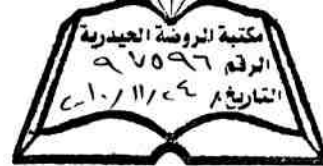 مكتبة الروضة الحيدرية
الرقم ٩٧٥٩٦
التاريخ ٢٠١٠/١١/٢٤